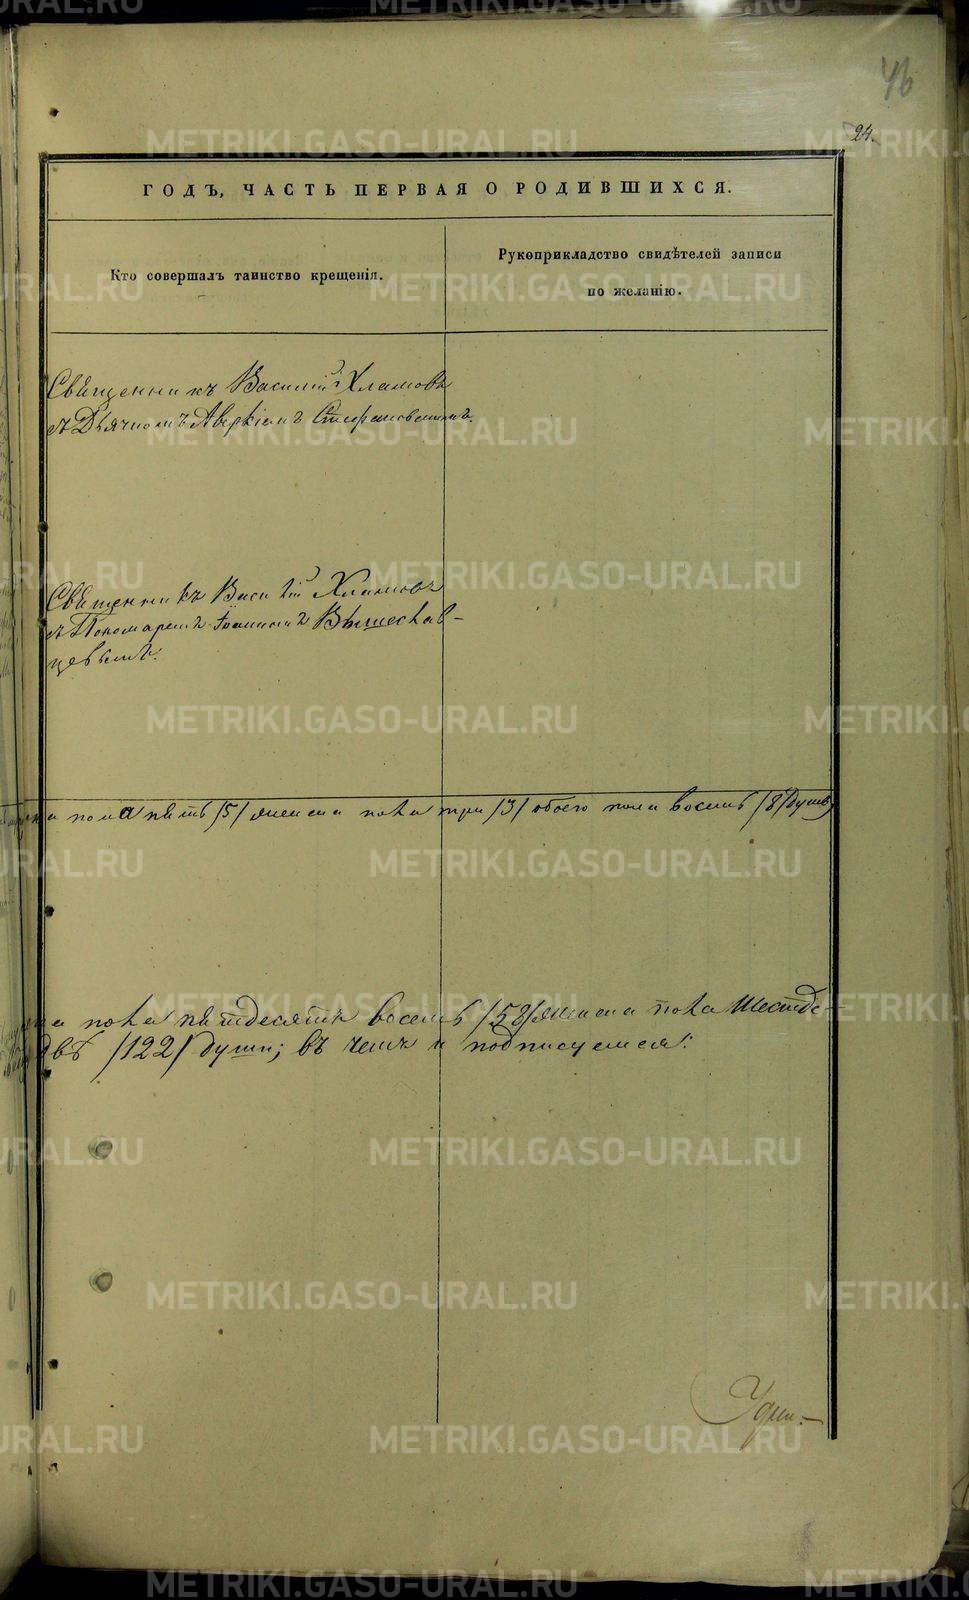 46
24.
ГОДЪ, ЧАСТЬ ПЕРВАЯ О РОДИВШИХСЯ.
Кто совершалъ таинство крещенія.
Рукоприкладство свидѣтелей записи
по желанію.
Священникъ Василій Хламовъ
съ Дьячкомъ Аверкіемъ Стефановскимъ.
Священникъ Василій Хламовъ
съ Пономаремъ Іоанномъ Вышеслав-
цевымъ.
пола пять /5/ женска пола три /3/ обоего пола восемь /8/ душъ
пола пятдесятъ восемь /58/ женска пола шестьде-
двѣ /122/ души; въ чемъ и подписуемся:
METRIKI.GASO-URAL.RU